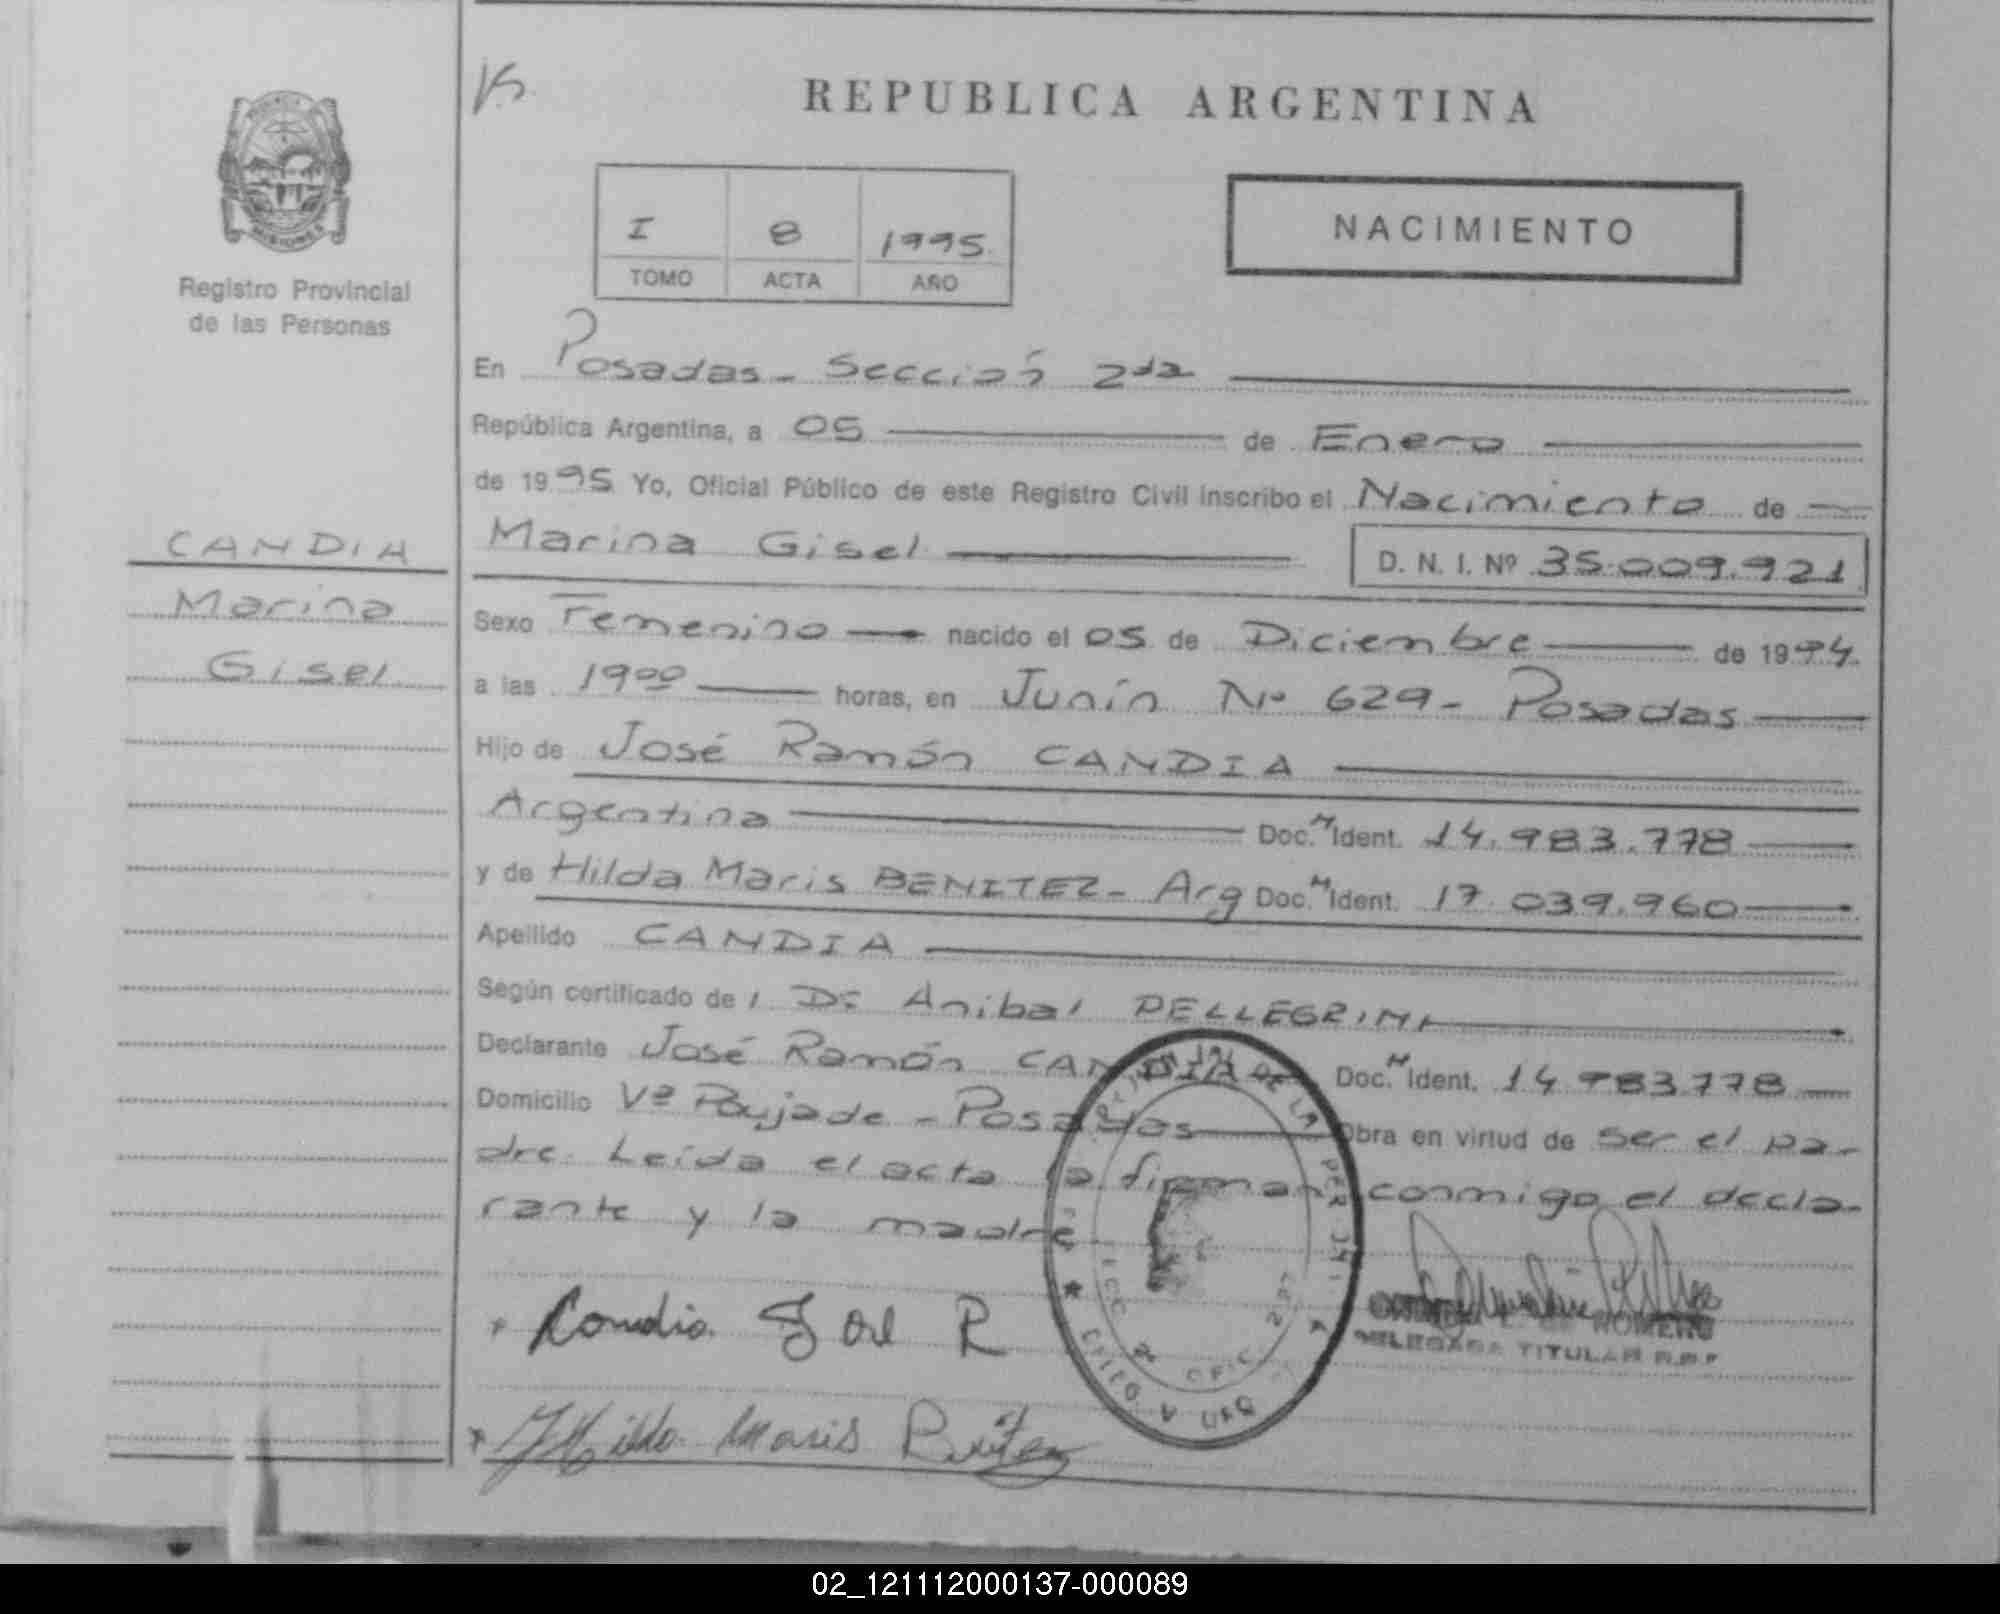 REPUBLICA ARGENTINA
MISIONES
Registro Provincial
de las Personas
I 8 1995
TOMO ACTA AÑO
NACIMIENTO
En Posadas - Sección 2da
República Argentina, a 05 de Enero
de 1995 Yo, Oficial Público de este Registro Civil inscribo el Nacimiento de
Marina Gisel D. N. I. Nº 35.009.921
CANDIA
Marina
Gisel
Sexo Femenino nacido el 05 de Diciembre de 1994
a las 19⁰⁰ horas, en Junín Nº 629 - Posadas
Hijo de José Ramón CANDIA
Argentina Doc. N Ident. 14.983.778
y de Hilda Maris BENITEZ - Arg Doc. N Ident. 17.039.960
Apellido CANDIA
Según certificado de Dr Anibal PELLEGRINI
Declarante José Ramón CANDIA Doc. N Ident. 14 983 778
Domicilio Vª Poujade - Posadas Obra en virtud de ser el pa-
dre. Leída el acta la firman conmigo el decla-
rante y la madre
Candia José R
Hilda Maris Benitez
ROMERO
DELEGADA TITULAR R.P.P
02_121112000137-000089